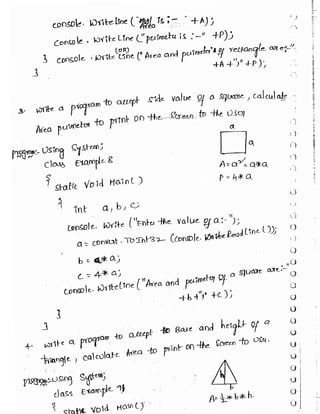 Console. WriteLine ("Area is :- " +A);
Console . WriteLine ("perimeter is :-" +P);
(OR)
} console . Write Line (" Area and perimeter of rectangle are :-".
+A +"," +P);
}
3. write a program to accept side value of a square, calculate
Area perimeter to print on the Screen to the User
a
program:- Using System;
a
Class Example 8
A = a² = a*a
{
P = 4*a
static void Main( )
{
int a, b, c;
Console. Write ("Enter the value of a :-");
a = convert . ToInt32 (Console. ReadLine( ));
b = a*a;
c = 4*a;
Console. WriteLine ("Area and perimeter of a square are:-"
+b +"," +c);
}
}
4. write a program to accept to Base and height of a
triangle, calculate Area to print on the screen to user.
program:- Using System;
class Example 9
h
b
{
A = ½ * b * h.
static void Main( )